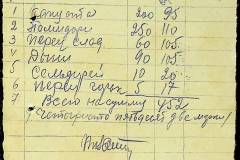 1 Капуста 200 95
2 Помидоры 250 110
3 Перец слад 60 105
4 Дыни 90 105
5 Сельдерей 10 20
6 Перец горьк 5 17
7 Всего на сумму 452
(Четыреста пятьдесят две